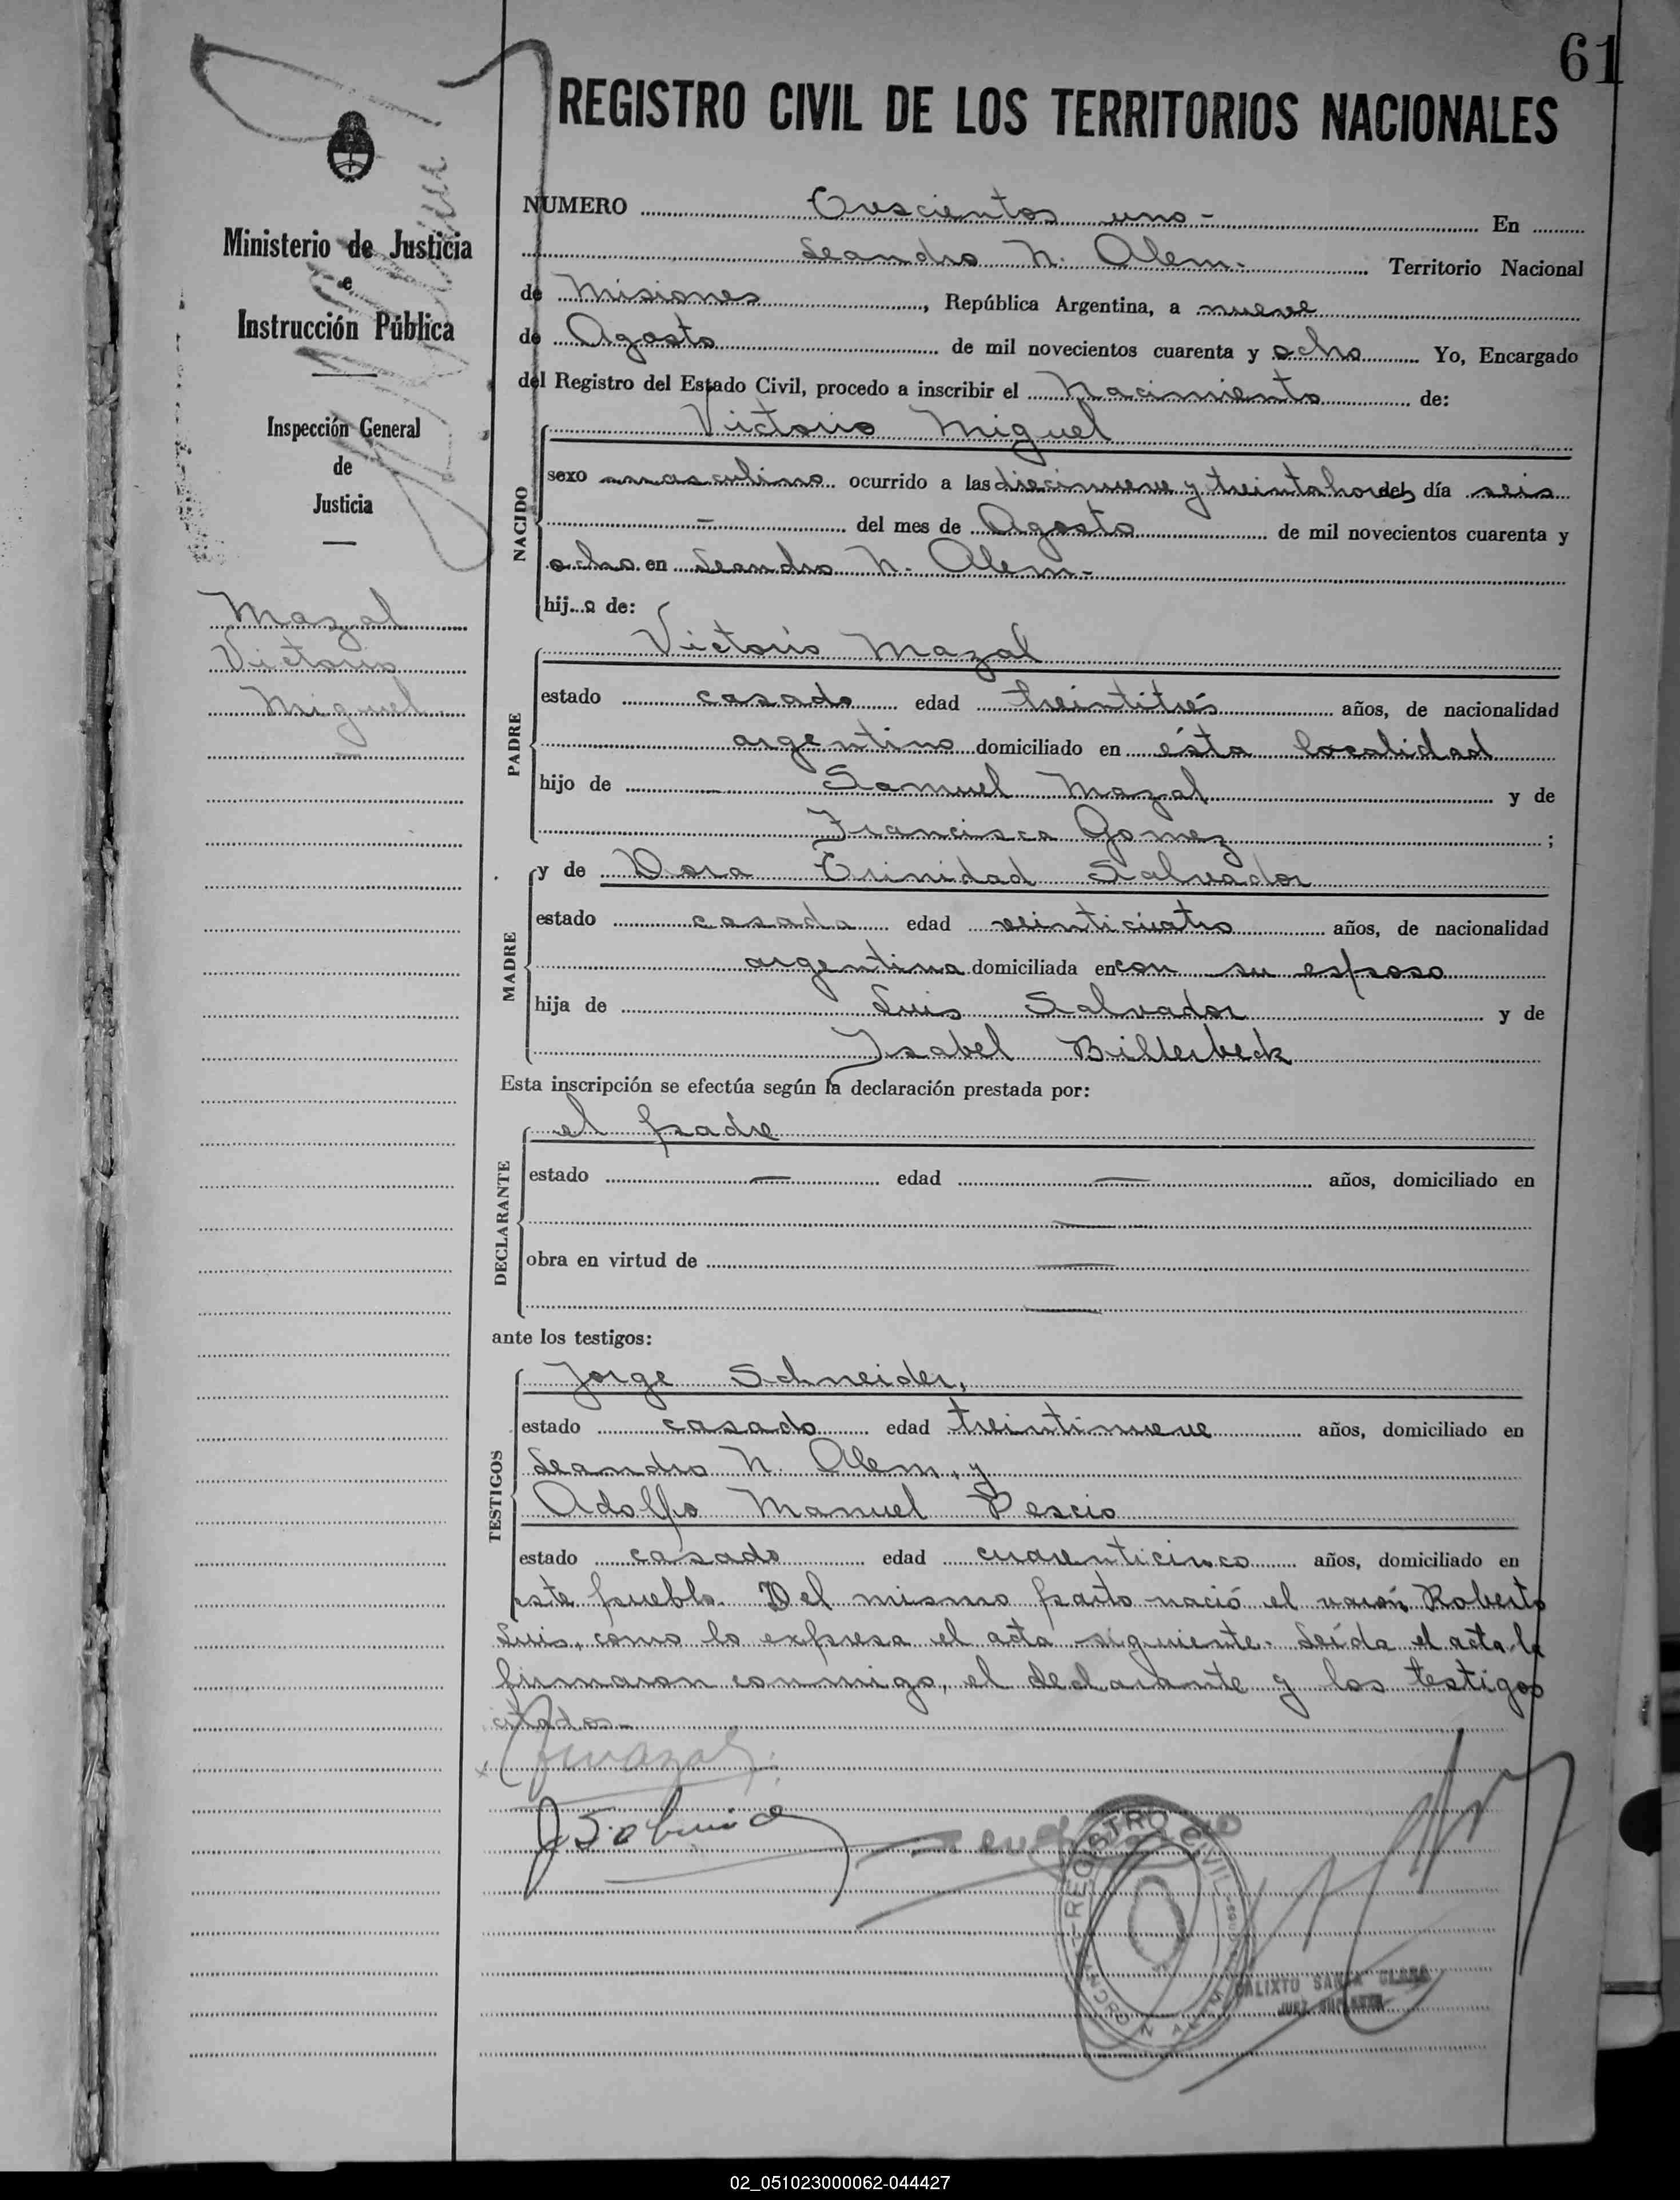 61
REGISTRO CIVIL DE LOS TERRITORIOS NACIONALES
Ministerio de Justicia
e
Instrucción Pública
Inspección General
de
Justicia
Mazal
Victorio
Miguel
NUMERO Trescientos uno - En
Leandro N. Alem - Territorio Nacional
de Misiones, República Argentina, a nueve
de Agosto de mil novecientos cuarenta y ocho Yo, Encargado
del Registro del Estado Civil, procedo a inscribir el Nacimiento de:
NACIDO
Victorio Miguel
sexo masculino ocurrido a las diecinueve y treinta horas del día seis
- del mes de Agosto de mil novecientos cuarenta y
ocho en Leandro N. Alem -
hij o de:
PADRE
Victorio Mazal
estado casado edad treintitrés años, de nacionalidad
argentino domiciliado en ésta localidad
hijo de Samuel Mazal y de
Francisca Gomez ;
MADRE
y de Dora Trinidad Salvador
estado casada edad veinticuatro años, de nacionalidad
argentina domiciliada en con su esposo
hija de Luis Salvador y de
Isabel Billerbeck
Esta inscripción se efectúa según la declaración prestada por:
DECLARANTE
el padre
estado — edad — años, domiciliado en
—
obra en virtud de —
—
ante los testigos:
TESTIGOS
Jorge Schneider,
estado casado edad treintinueve años, domiciliado en
Leandro N. Alem, y
Adolfo Manuel Pescio
estado casado edad cuarenticinco años, domiciliado en
este pueblo. Del mismo parto nació el varón Roberto
Luis, como lo expresa el acta siguiente. Leída el acta la
firmaron conmigo, el declarante y los testigos
citados -
REGISTRO CIVIL
CALIXTO SANTA CLARA
JUEZ SUPLENTE
02_051023000062-044427